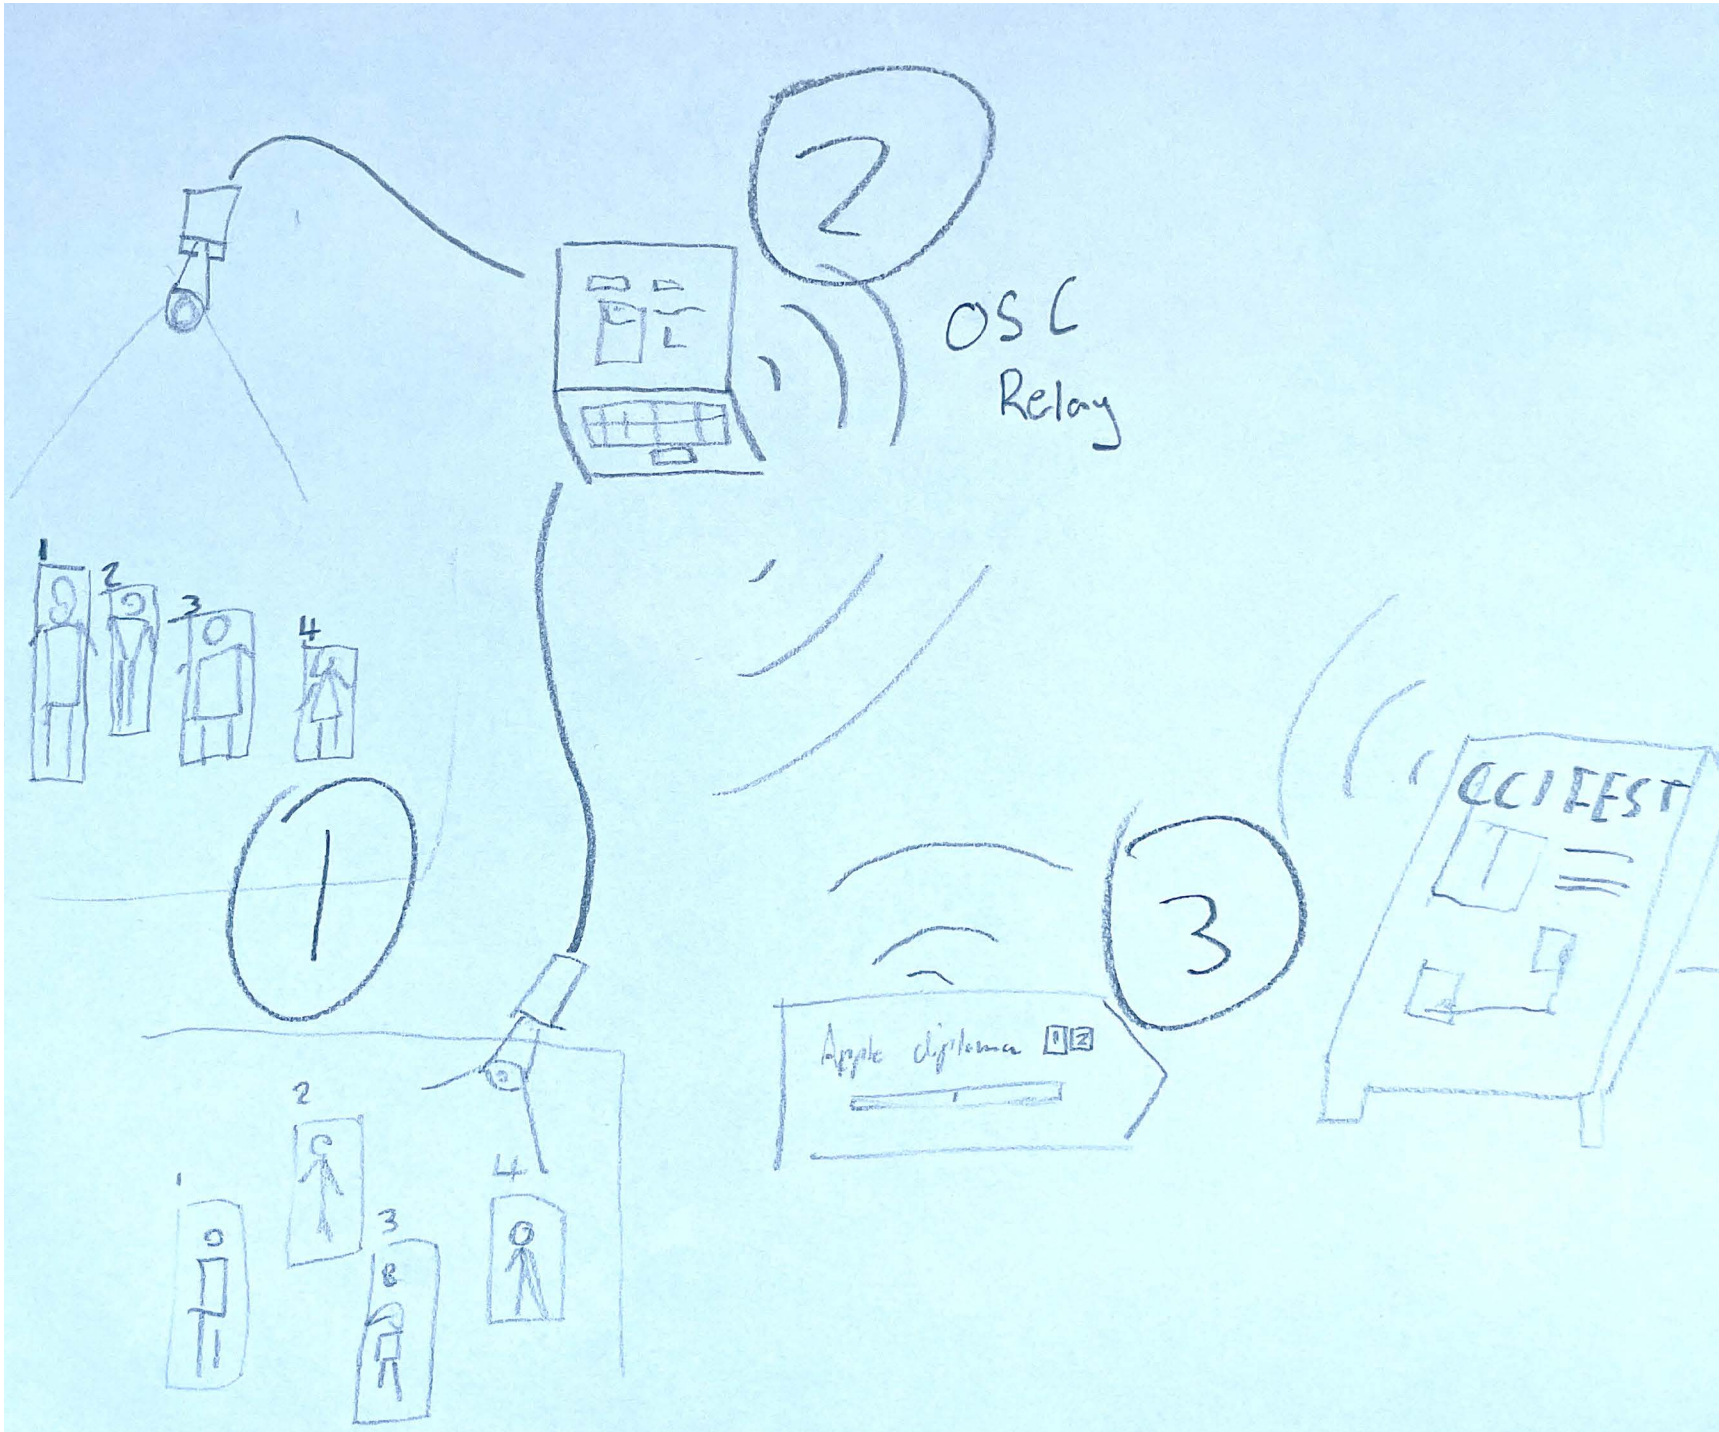 2
OSC
Relay
1
2
3
4
1
CCI FEST
3
Apple diploma 1 2
2
4
1
3